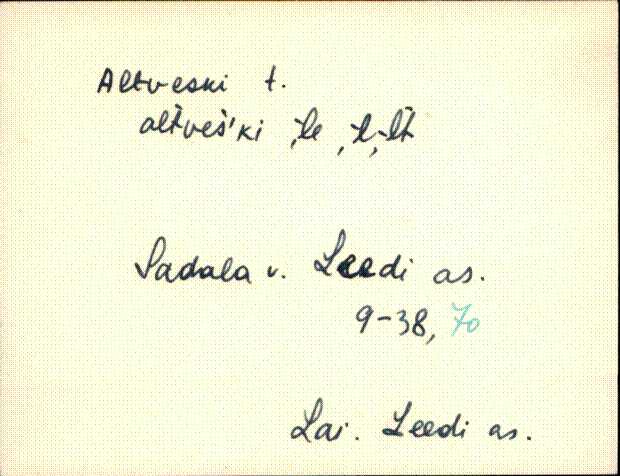 Altveski t.
altveš'ki, le, l, lt
Sadala v. Leedi as.
9-38, 70
Lai. Leedi as.